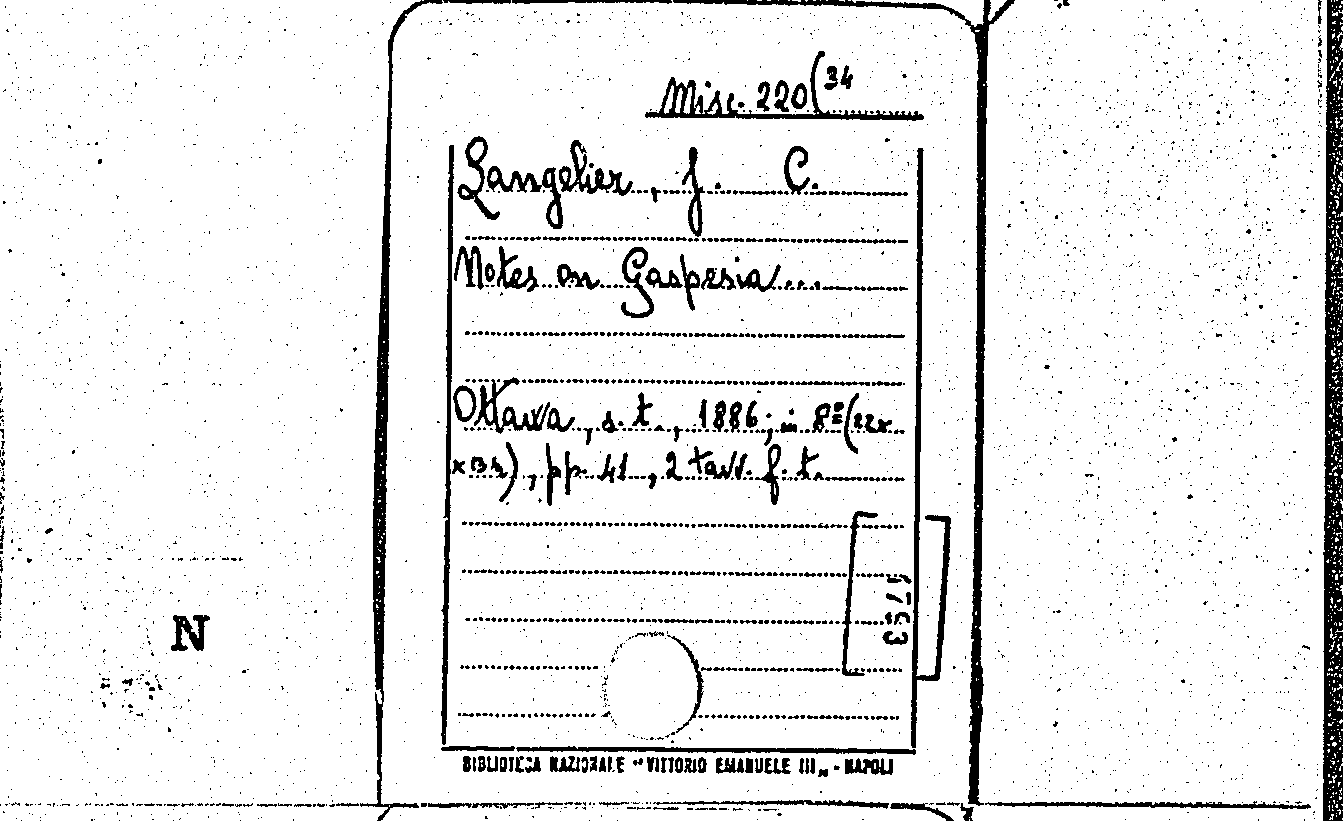 Misc. 220(34
Langelier, J. C.
Notes on Gaspesia...
Ottawa, s. t., 1886; in 8º (22x
x13,5), pp. 41, 2 tavv. f. t.
1753
N
BIBLIOTECA NAZIONALE "VITTORIO EMANUELE III„ - NAPOLI